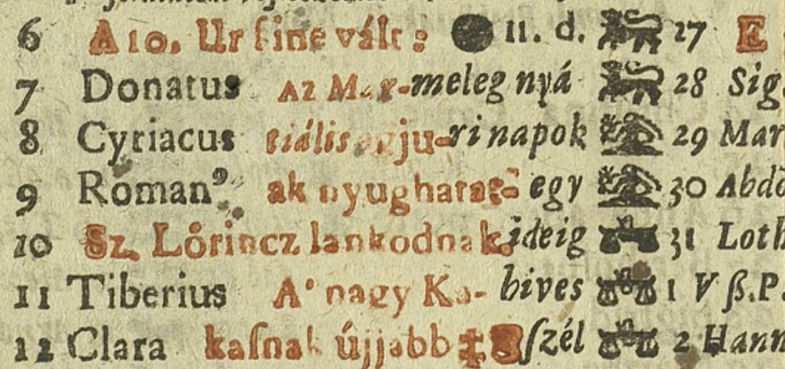 6 A 10. Ur ſine vált: 11. d. 27 E
7 Donatus Az Mar- meleg nyá 28 Sig
8 Cyriacus tiális ju- ri napok 29 Mar
9 Roman⁹ ak egy 30 Abdo
10 Sz. Lőrincz lankodnak. ideig 31 Loth
11 Tiberius A' nagy Ka- hives 1 V ß.P.
12 Clara kaſnak újjabb ſzél 2 Hann